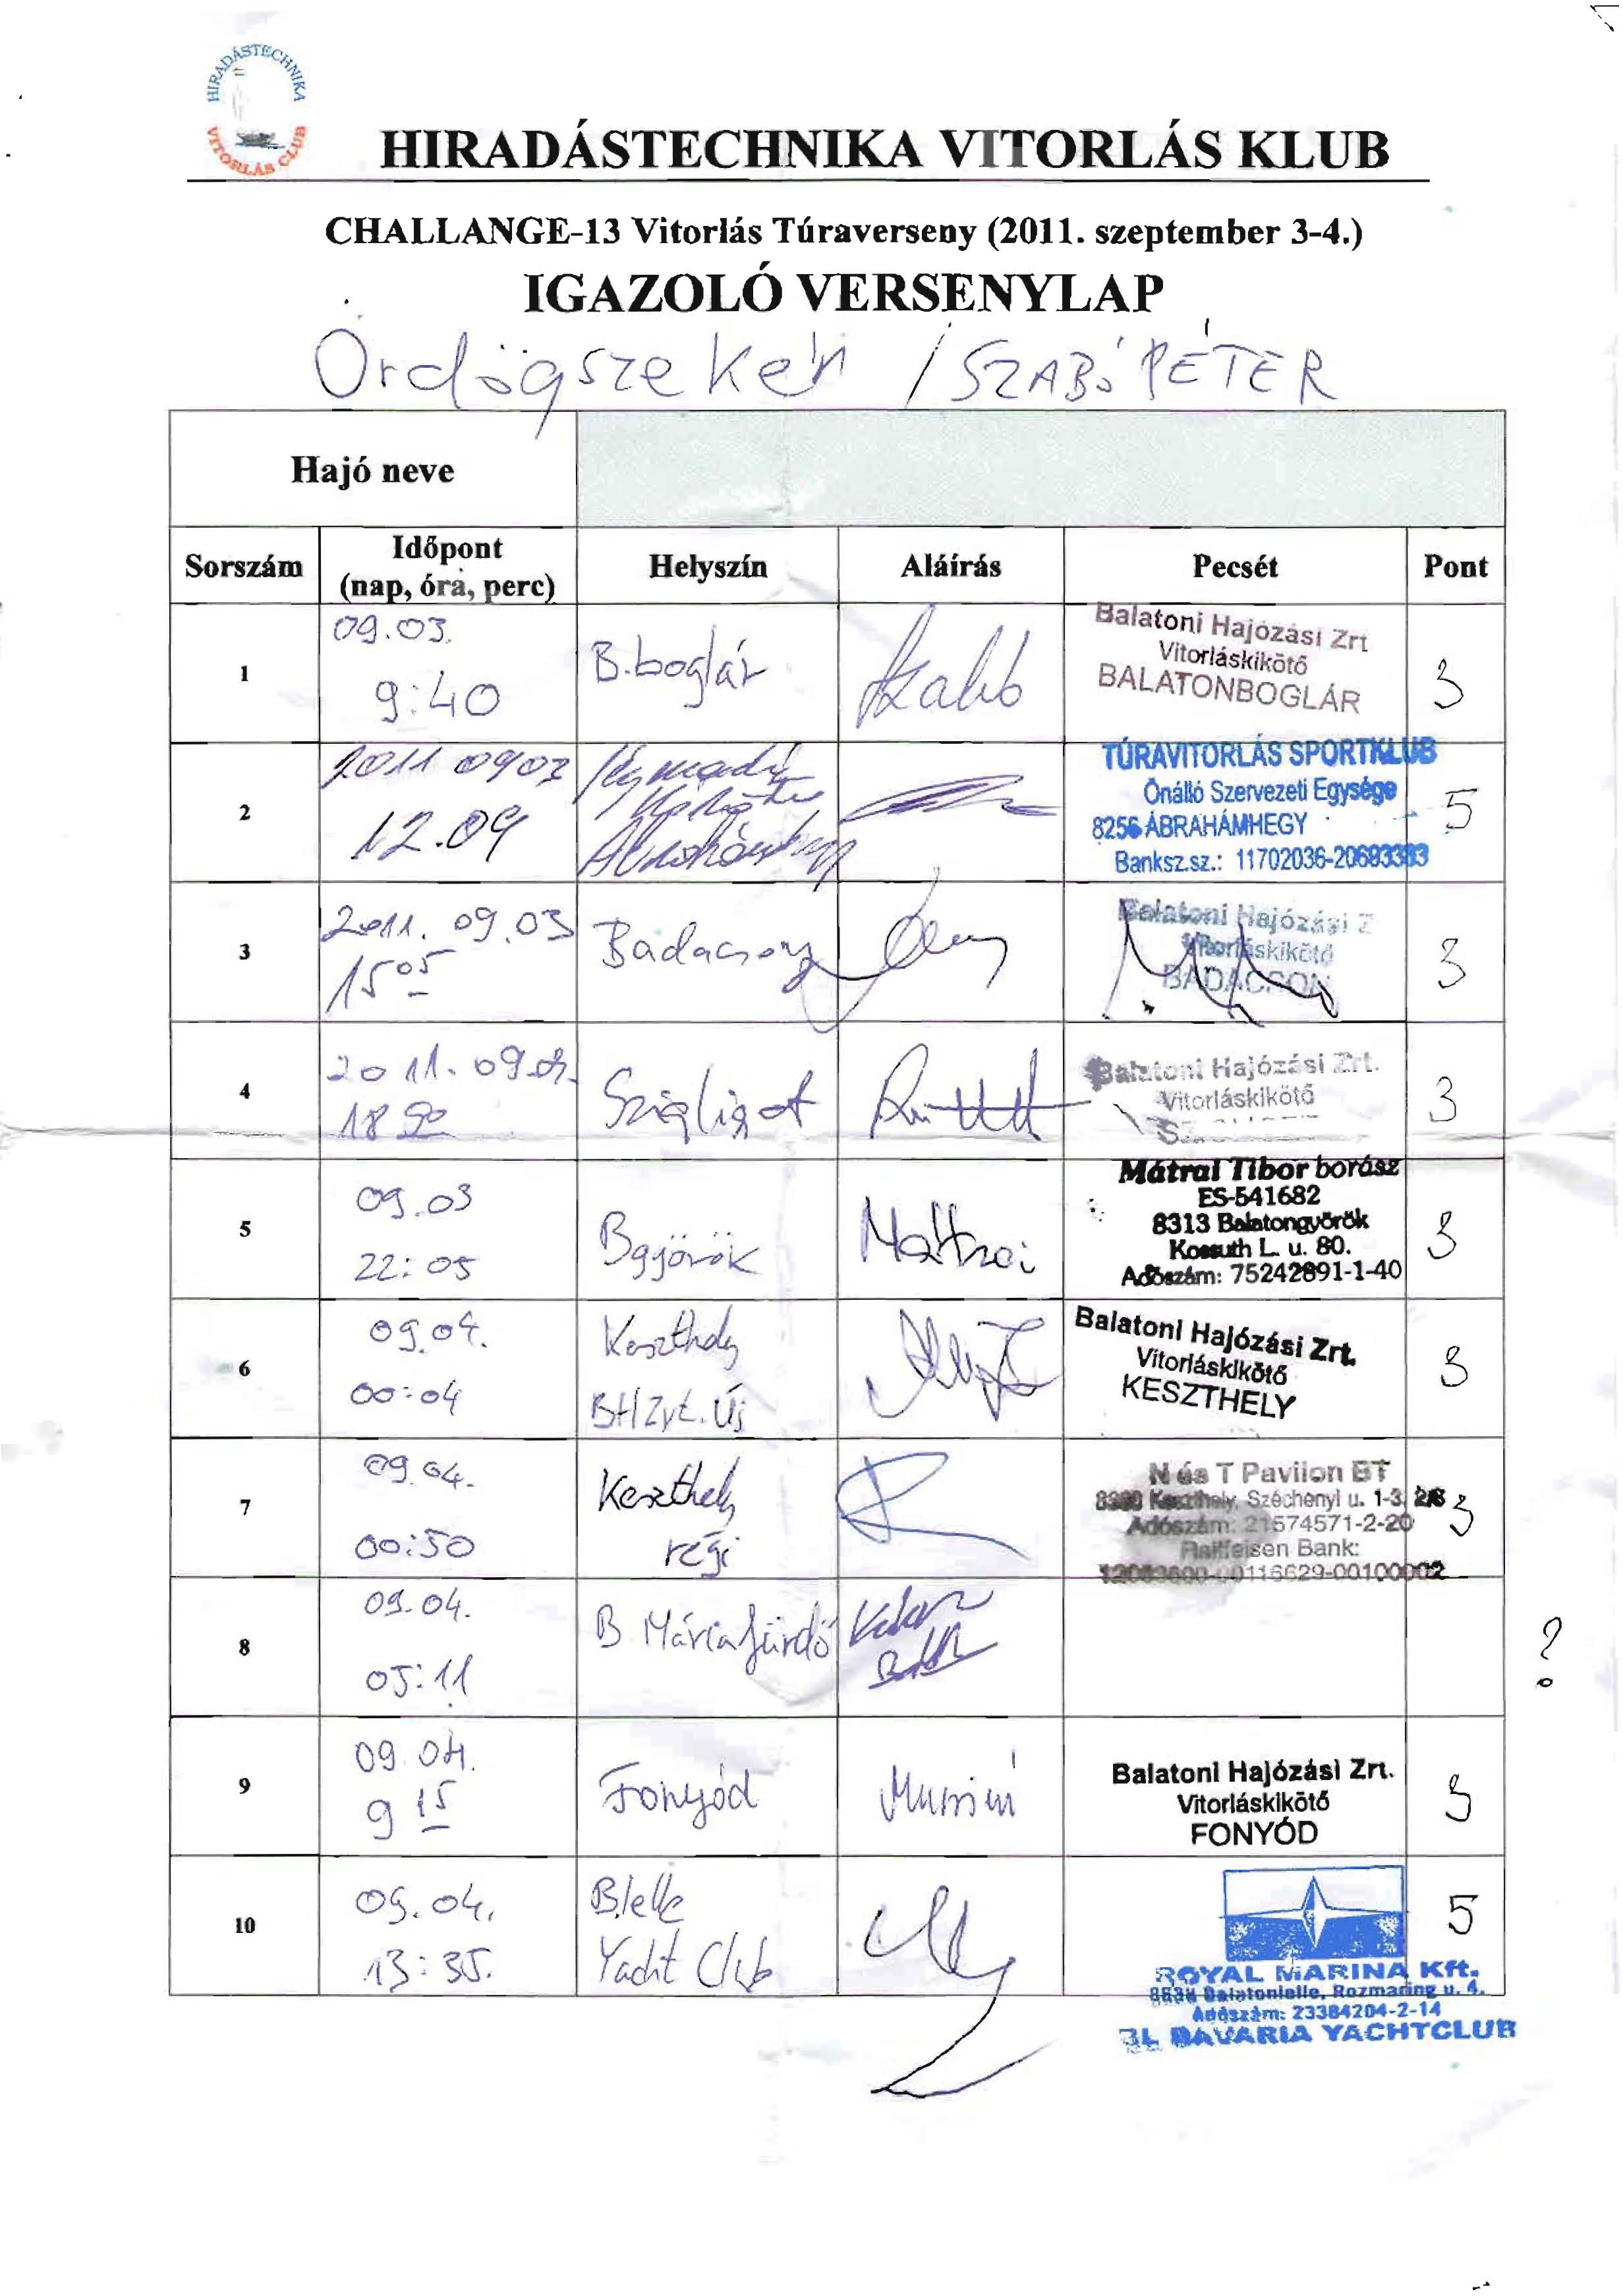 HIRADÁSTECHNIKA
VITORLÁS CLUB
HIRADÁSTECHNIKA VITORLÁS KLUB
CHALLANGE-13 Vitorlás Túraverseny (2011. szeptember 3-4.)
IGAZOLÓ VERSENYLAP
Ördögszekér / SZABÓ PÉTER
Hajó neve
Sorszám
Időpont
(nap, óra, perc)
Helyszín
Aláírás
Pecsét
Pont
1
09.03.
9:40
B.boglár
Szabó
Balatoni Hajózási Zrt
Vitorláskikötő
BALATONBOGLÁR
3
2
2011 0903
12.09
TÚRAVITORLÁS SPORTKLUB
Önálló Szervezeti Egysége
8256 ÁBRAHÁMHEGY
Banksz.sz.: 11702036-20693383
5
3
2011. 09.03
15 05
Badacsony
Balatoni Hajózási Z
Vitorláskikötő
BADACSON
3
4
2011. 09.03.
18
Szigliget
Balatoni Hajózási Zrt.
Vitorláskikötő
3
5
09.03
22:05
Bgyörök
Mátrai
Mátrai Tibor borász
ES-541682
8313 Balatongyörök
Kossuth L. u. 80.
Adószám: 75242891-1-40
3
6
09.04.
00:04
Keszthely
BHZrt. Új
Balatoni Hajózási Zrt.
Vitorláskikötő
KESZTHELY
3
7
09.04.
00:50
Keszthely
régi
N és T Pavilon BT
8360 Keszthely, Széchenyi u. 1-3.
Adószám: 21574571-2-20
Raiffeisen Bank:
-00116629-00100002
3
8
09.04.
05:11
B Máriafürdő
?
9
09.04.
9 15
Fonyód
Balatoni Hajózási Zrt.
Vitorláskikötő
FONYÓD
3
10
09.04.
13:35.
B.lelle
Yacht Club
5
ROYAL MARINA Kft.
8638 Balatonlelle, Rozmaring u. 4.
Adószám: 23384204-2-14
BL BAVARIA YACHTCLUB